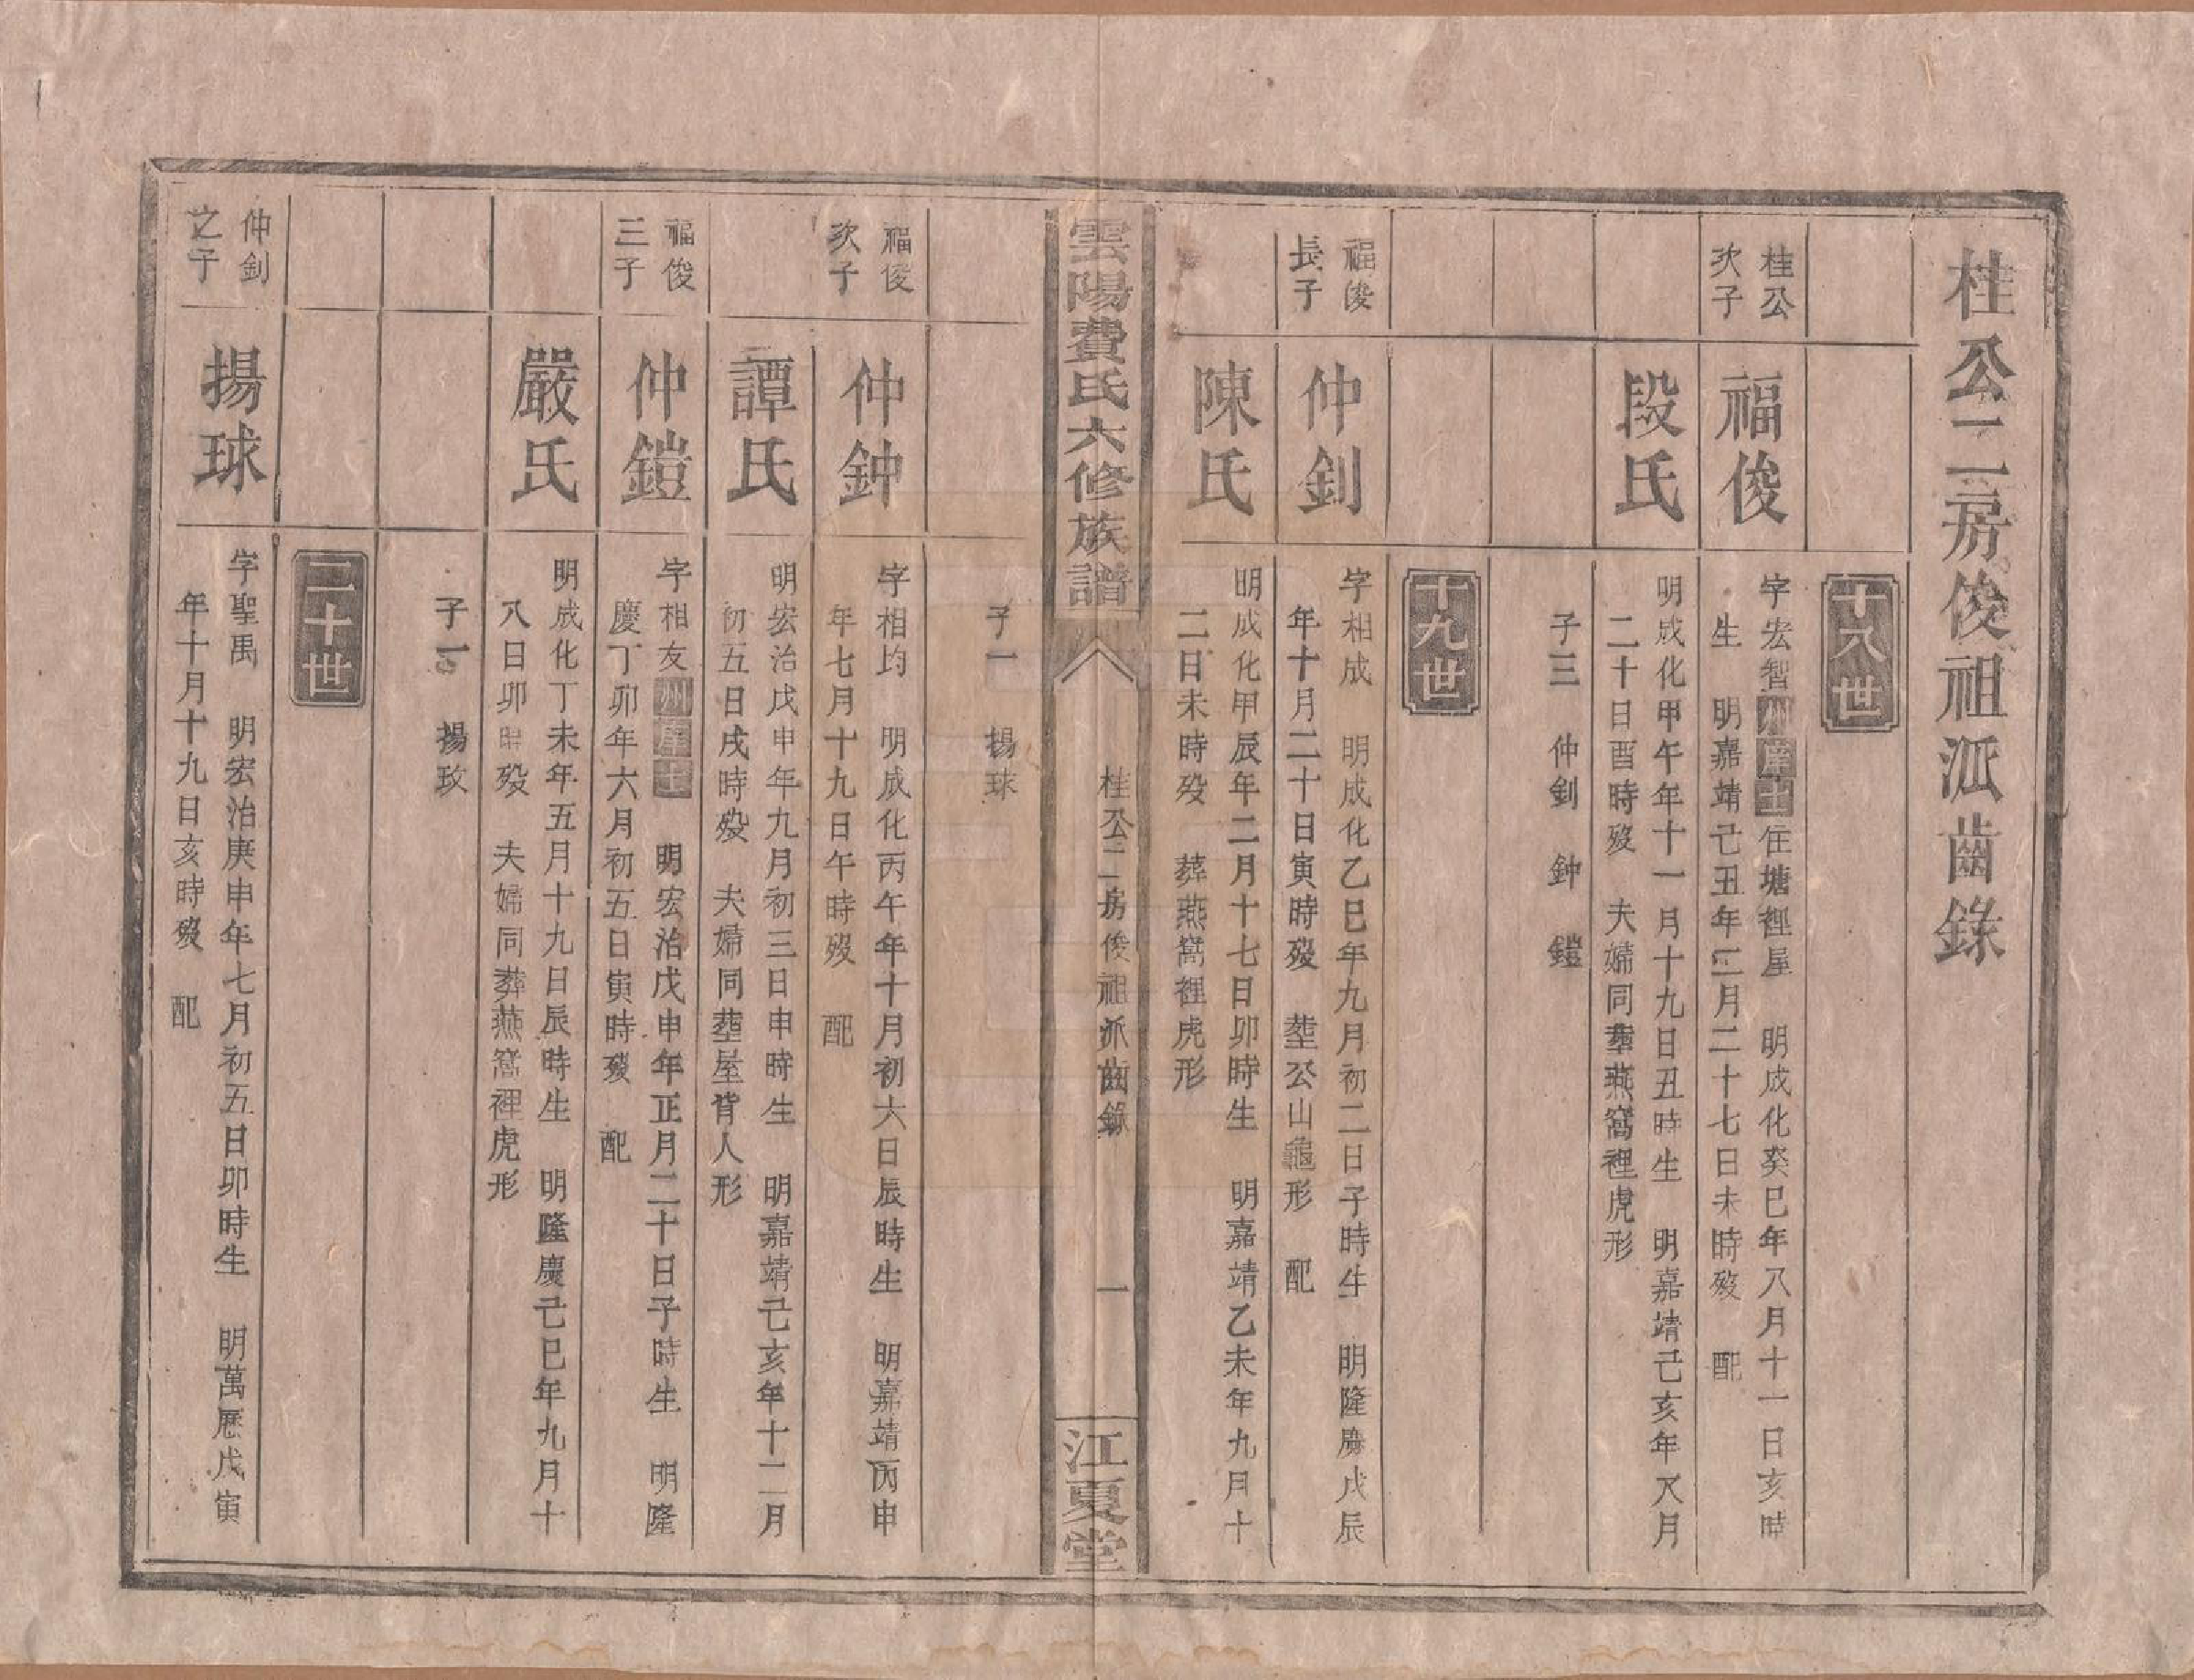 桂公二房俊祖派齒錄
十八世
桂公
次子
福俊
字宏智州庠士住塘裡屋　明成化癸巳年八月十一日亥時
生　明嘉靖己丑年三月二十七日未時歿　配
段氏
明成化甲午年十一月十九日丑時生　明嘉靖己亥年八月
二十日酉時歿　夫婦同塟燕窩裡虎形
子三　仲釗　鈡　鎧
十九世
福俊
長子
仲釗
字相成　明成化乙巳年九月初二日子時生　明隆慶戊辰
年十月二十日寅時歿　塟公山龜形　配
陳氏
明成化甲辰年二月十七日卯時生　明嘉靖乙未年九月十
二日未時歿　葬燕窩裡虎形
雲陽費氏六修族譜
桂公二房俊祖派齒錄
一
江夏堂
子一　揚球
福俊
次子
仲鈡
字相均　明成化丙午年十月初六日辰時生　明嘉靖丙申
年七月十九日午時歿　配
譚氏
明宏治戊申年九月初三日申時生　明嘉靖己亥年十二月
初五日戌時歿　夫婦同塟屋背人形
福俊
三子
仲鎧
字相友州庠士　明宏治戊申年正月二十日子時生　明隆
慶丁卯年六月初五日寅時歿　配
嚴氏
明成化丁未年五月十九日辰時生　明隆慶己巳年九月十
八日卯時歿　夫婦同葬燕窩裡虎形
子一　揚玫
二十世
仲釗
之子
揚球
字聖禹　明宏治庚申年七月初五日卯時生　明萬歷戊寅
年十月十九日亥時歿　配